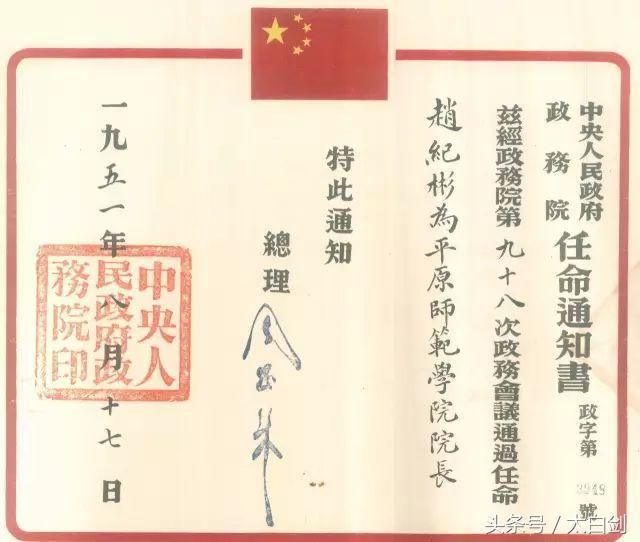 中央人民政府
政務院
任命通知書
政字第3948號
茲經政務院第九十八次政務會議通過任命
趙紀彬為平原師範學院院長
特此通知
總理
周恩來
一九五一年八月十七日
中央人
民政府政
務院印
头条号 / 太白剑